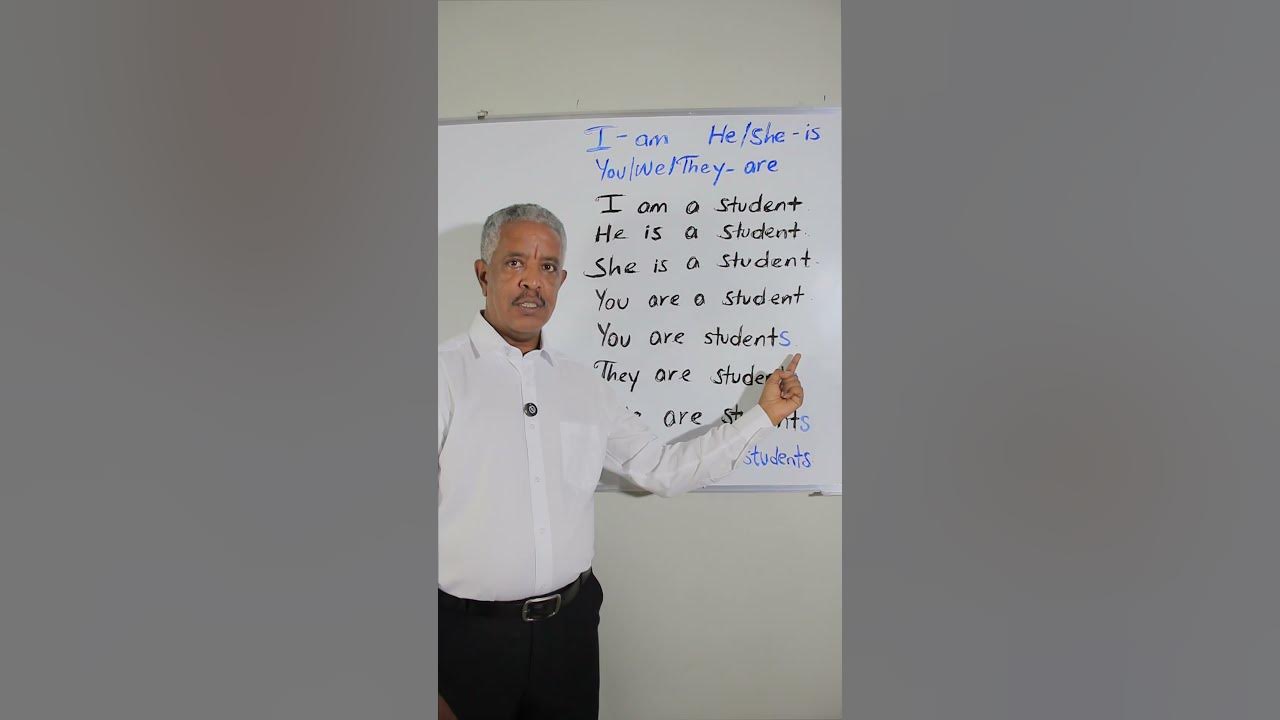 I - am He/She - is
You/We/They - are
I am a student.
He is a student.
She is a student.
You are a student.
You are students.
They are
are students
students